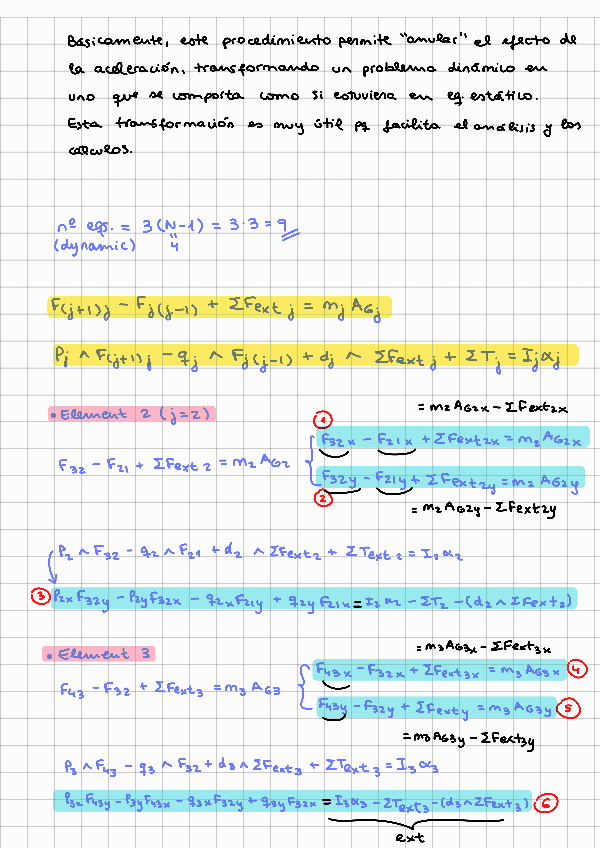 Básicamente, este procedimiento permite "anular" el efecto de
la aceleración, transformando un problema dinámico en
uno que se comporta como si estuviera en eq. estático.
Esta transformación es muy útil pq facilita el análisis y los
cálculos.
nº eqs. = 3(N-1) = 3·3 = 9
(dynamic) 4
F(j+1)j - Fj(j-1) + ΣFext j = mj AGj
Pj ∧ F(j+1)j - qj ∧ Fj(j-1) + dj ∧ ΣFext j + ΣTj = Ij αj
• Element 2 (j=2)
= m2 AG2x - ΣFext2x
①
F32x - F21x + ΣFext2x = m2 AG2x
F32 - F21 + ΣFext 2 = m2 AG2
F32y - F21y + ΣFext2y = m2 AG2y
②
= m2 AG2y - ΣFext2y
P2 ∧ F32 - q2 ∧ F21 + d2 ∧ ΣFext2 + ΣText2 = I2 α2
③ P2x F32y - P2y F32x - q2x F21y + q2y F21x = I2 α2 - ΣT2 - (d2 ∧ ΣFext2)
• Element 3
= m3 AG3x - ΣFext3x
F43x - F32x + ΣFext3x = m3 AG3x ④
F43 - F32 + ΣFext3 = m3 AG3
F43y - F32y + ΣFexty = m3 AG3y ⑤
= m3 AG3y - ΣFext3y
P3 ∧ F43 - q3 ∧ F32 + d3 ∧ ΣFext3 + ΣText3 = I3 α3
P3x F43y - P3y F43x - q3x F32y + q3y F32x = I3 α3 - ΣText3 - (d3 ∧ ΣFext3) ⑥
ext